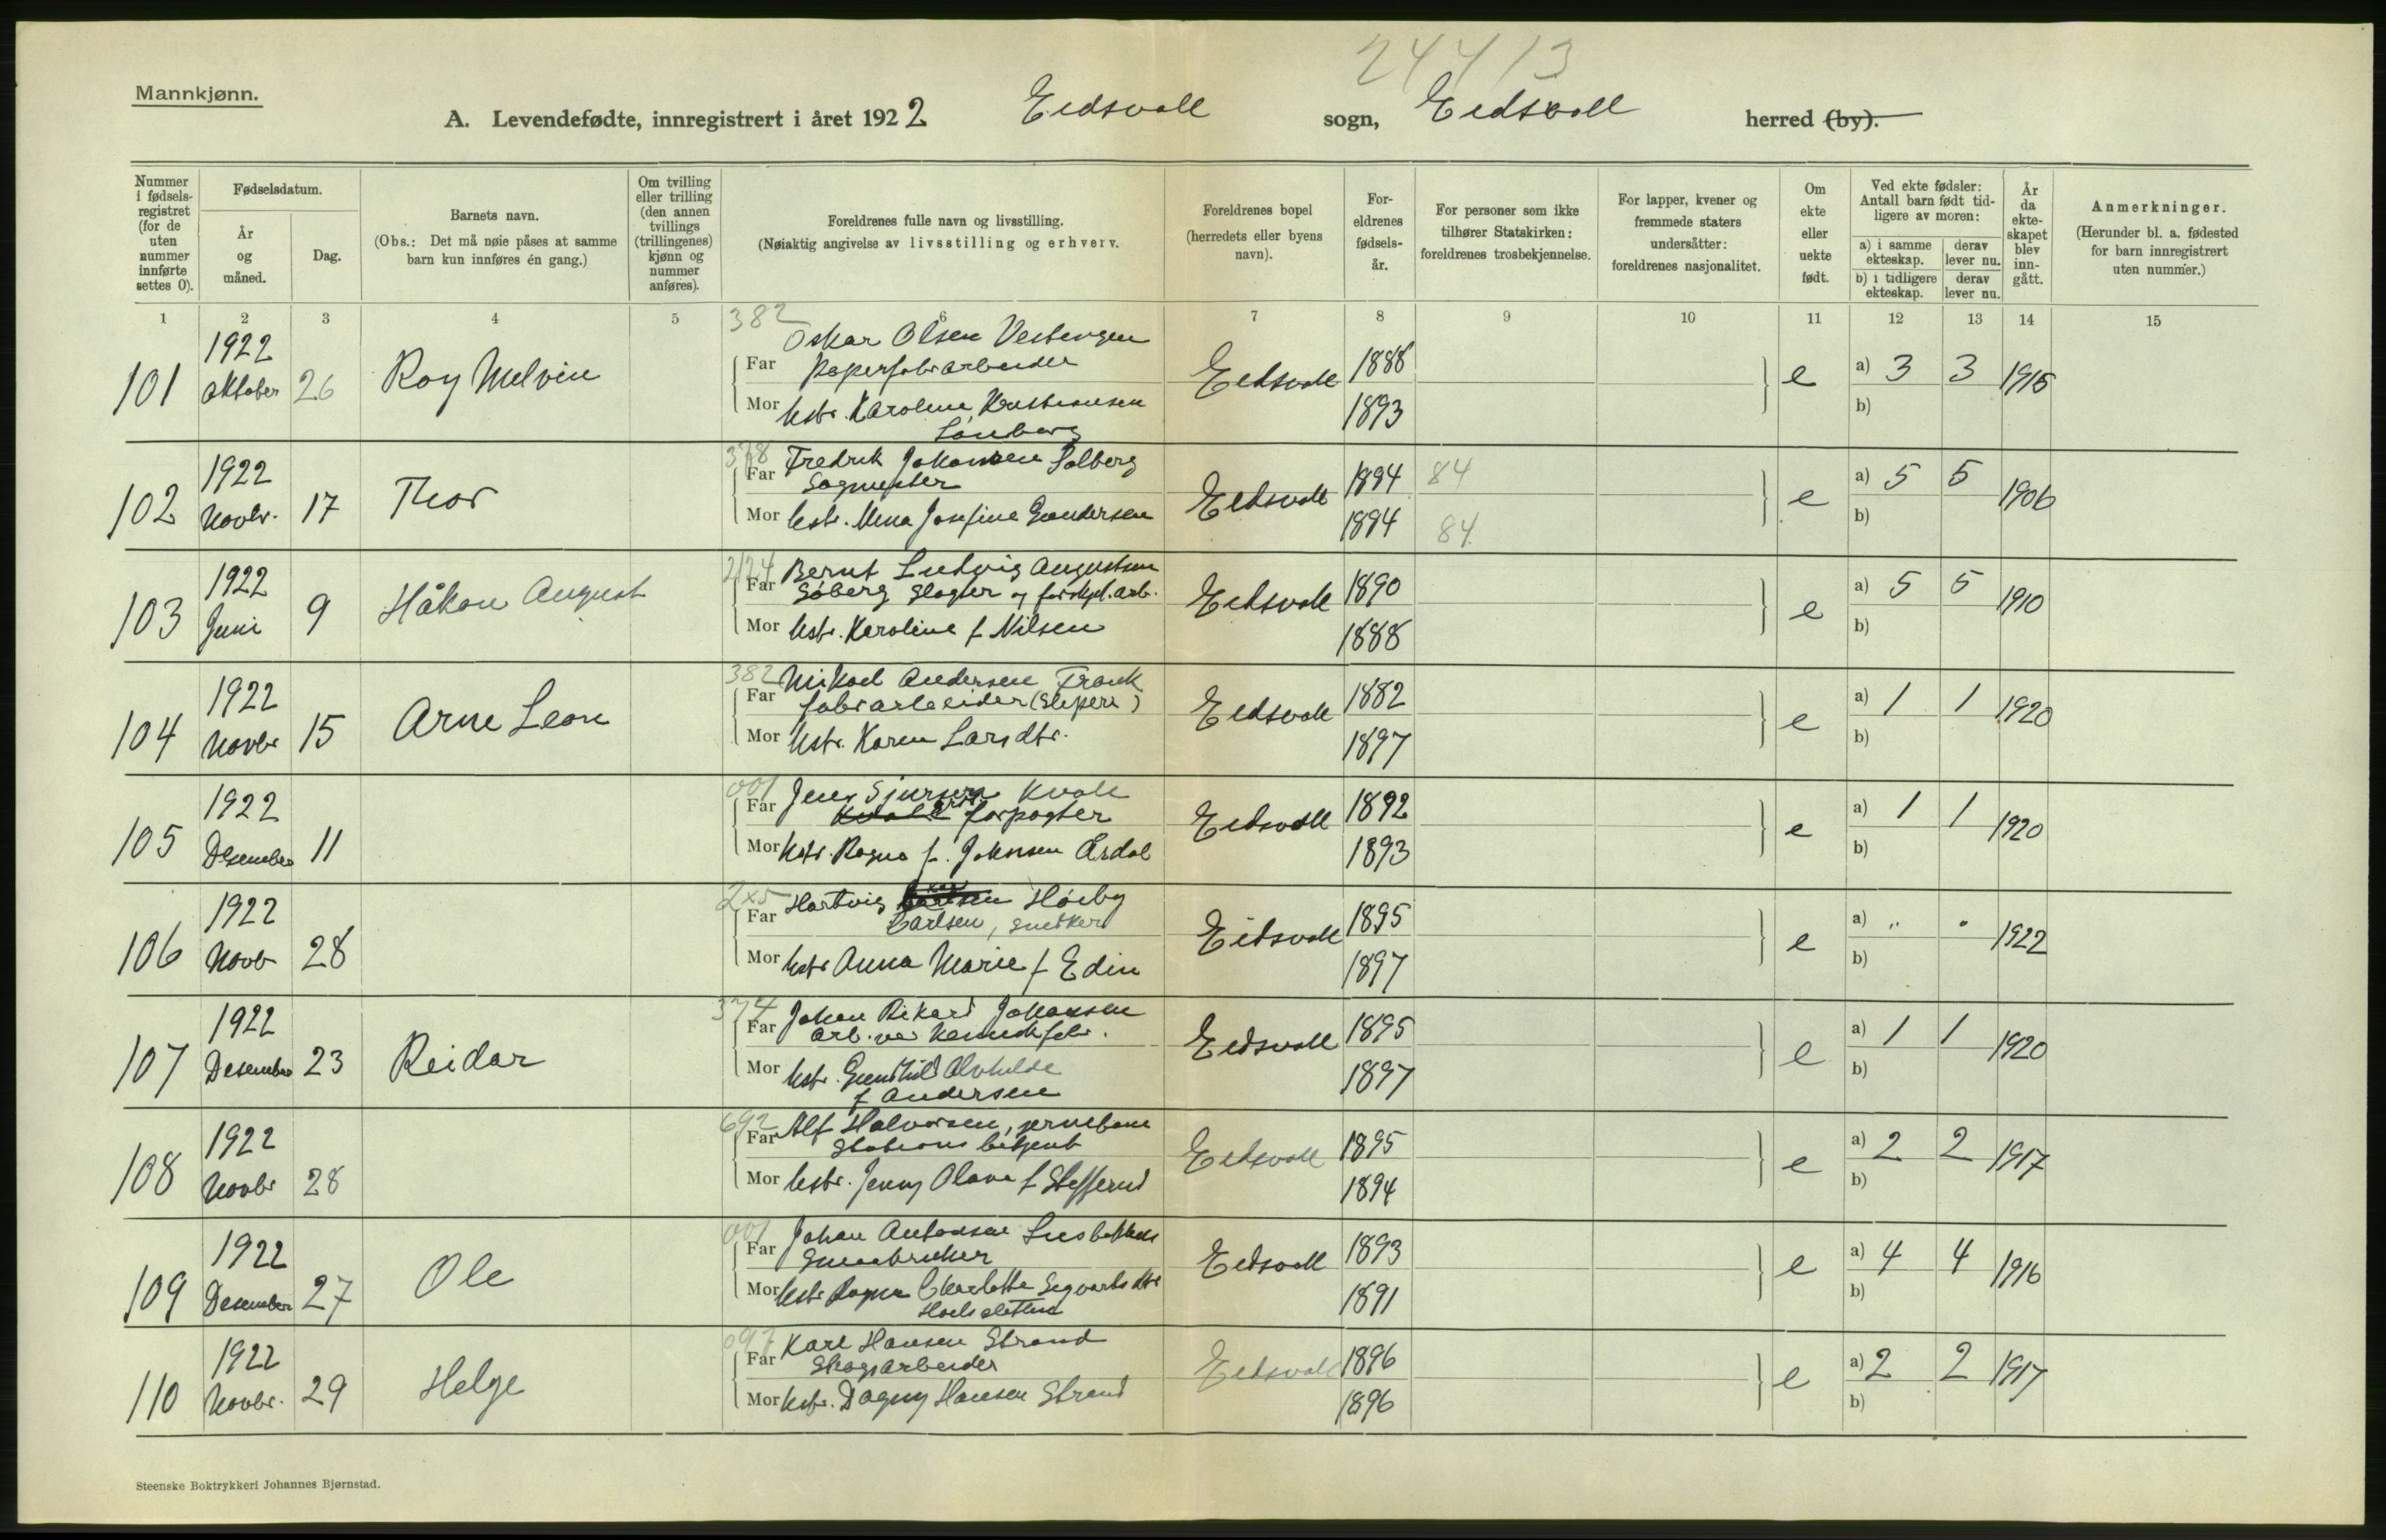 24413
Mannkjønn.
A. Levendefødte, innregistrert i året 1922 Eidsvoll sogn, Eidsvoll herred (by).
Nummer i fødselsregistret (for de uten nummer innførte settes 0).
Fødselsdatum.
År og måned.
Dag.
Barnets navn.
(Obs.: Det må nøie påses at samme barn kun innføres én gang.)
Om tvilling eller trilling (den annen tvillings (trillingenes) kjønn og nummer anføres).
Foreldrenes fulle navn og livsstilling.
(Nøiaktig angivelse av livsstilling og erhverv.
Foreldrenes bopel (herredets eller byens navn).
For-eldrenes fødsels-år.
For personer som ikke tilhører Statskirken: foreldrenes trosbekjennelse.
For lapper, kvener og fremmede staters undersåtter: foreldrenes nasjonalitet.
Om ekte eller uekte født.
Ved ekte fødsler: Antall barn født tidligere av moren:
a) i samme ekteskap. derav lever nu.
b) i tidligere ekteskap. derav lever nu.
År da ekteskapet blev inngått.
Anmerkninger.
(Herunder bl. a. fødested for barn innregistrert uten nummer.)
1 2 3 4 5 6 7 8 9 10 11 12 13 14 15
382
101 1922 Oktober 26 Roy Melvin
Far Oskar Olsen Vestengen
Papirfabrarbeider
Mor Hustr. Karoline Kristiansen
Lønberg
Eidsvoll 1888 1893 e a) 3 3 1915
b)
378
102 1922 Novbr. 17 Thor
Far Fredrik Johansen Solberg
Sagmester
Mor Hustr. Mina Josefine Gundersen
Eidsvoll 1894 84 1894 84 e a) 5 5 1906
b)
103 1922 Juni 9 Håkon August
Far Bernt Ludvig Augustsen
Søberg Slagter og
Mor Hustr. Karoline f Nilsen
Eidsvoll 1890 1888 e a) 5 5 1910
b)
382
104 1922 Novbr 15 Arne Leon
Far Mikael Andersen Frank
fabrarbeider (Sliperi)
Mor Hustr. Karen Larsdtr.
Eidsvoll 1882 1897 e a) 1 1 1920
b)
001
105 1922 Desember 11
Far Jens Sjursen Kvale
forpagter
Mor Hustr. Ragna f. Johnsen Årdal
Eidsvoll 1892 1893 e a) 1 1 1920
b)
2x5
106 1922 Novb 28
Far Hartvig Høiby
Carlsen, snedker
Mor Hustr Anna Marie f Edin
Eidsvoll 1895 1897 e a) " " 1922
b)
374
107 1922 Desember 23 Reidar
Far Johan Rikard Johansen
Arb. ved
Mor Hustr. Gunhild Alvhilde
f Andersen
Eidsvoll 1895 1897 e a) 1 1 1920
b)
692
108 1922 Novbr 28
Far Alf Halvorsen, jernbane
Stations betjent
Mor Hustr. Jenny Olava f Stefferud
Eidsvoll 1895 1894 e a) 2 2 1917
b)
001
109 1922 Desember 27 Ole
Far Johan Antonsen
Småbruker
Mor Hustr Ragna Charlotte Sigvartsdtr
Eidsvoll 1893 1891 e a) 4 4 1916
b)
097
110 1922 Novbr. 29 Helge
Far Karl Hansen Strand
Skogsarbeider
Mor Hustr. Dagny Hansen Strand
Eidsvoll 1896 1896 e a) 2 2 1917
b)
Steenske Boktrykkeri Johannes Bjørnstad.